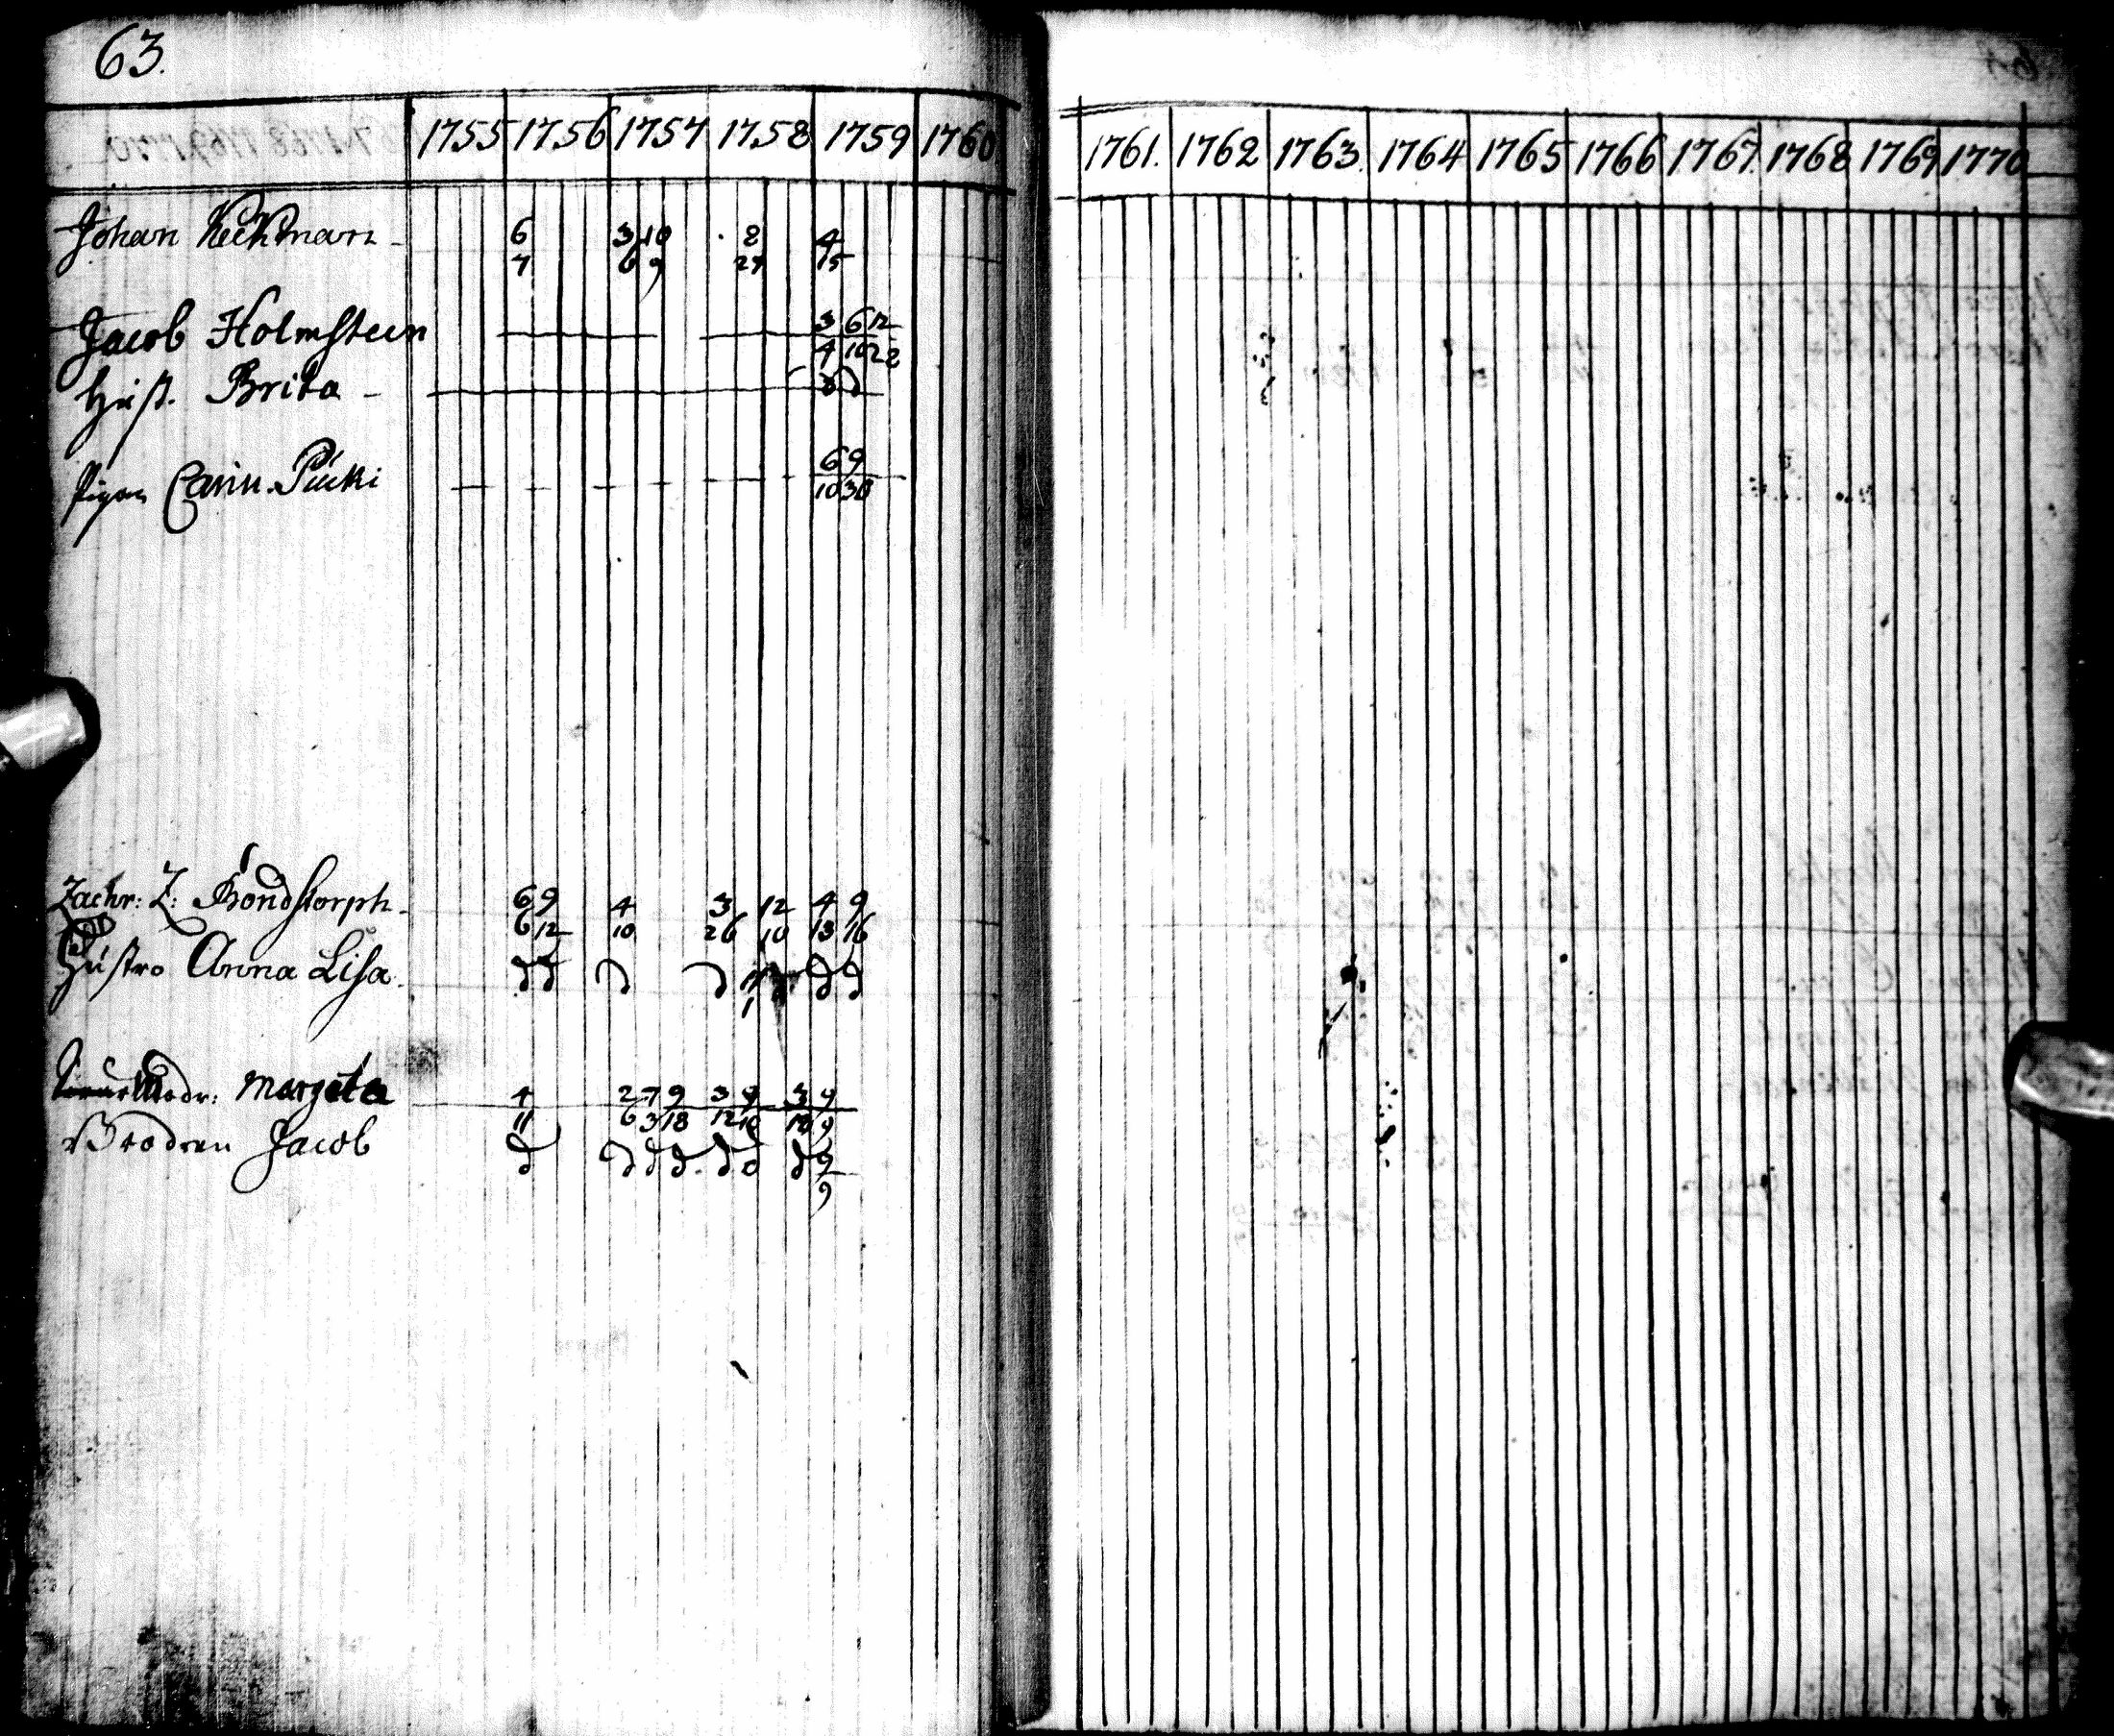 63.
1755 1756 1757 1758 1759 1760
1761. 1762 1763. 1764 1765 1766 1767. 1768 1769 1770
Johan Keckman 6 3 10 2 4
7 6 9 27 15
Jacob Holmsteen 3 6 12
4 10 22
Hust. Brita d d
Pigan Carin 6 9
10 30
Zachr: Z: Bondstorph 6 9 4 3 12 4 9
6 12 10 26 10 13 16
Hustro Anna Lisa d d d d d d
Modr: Margeta 4 2 7 9 3 9 3 9
11 6 3 18 12 10 18 9
Brodren Jacob d d d d d d d 9
9